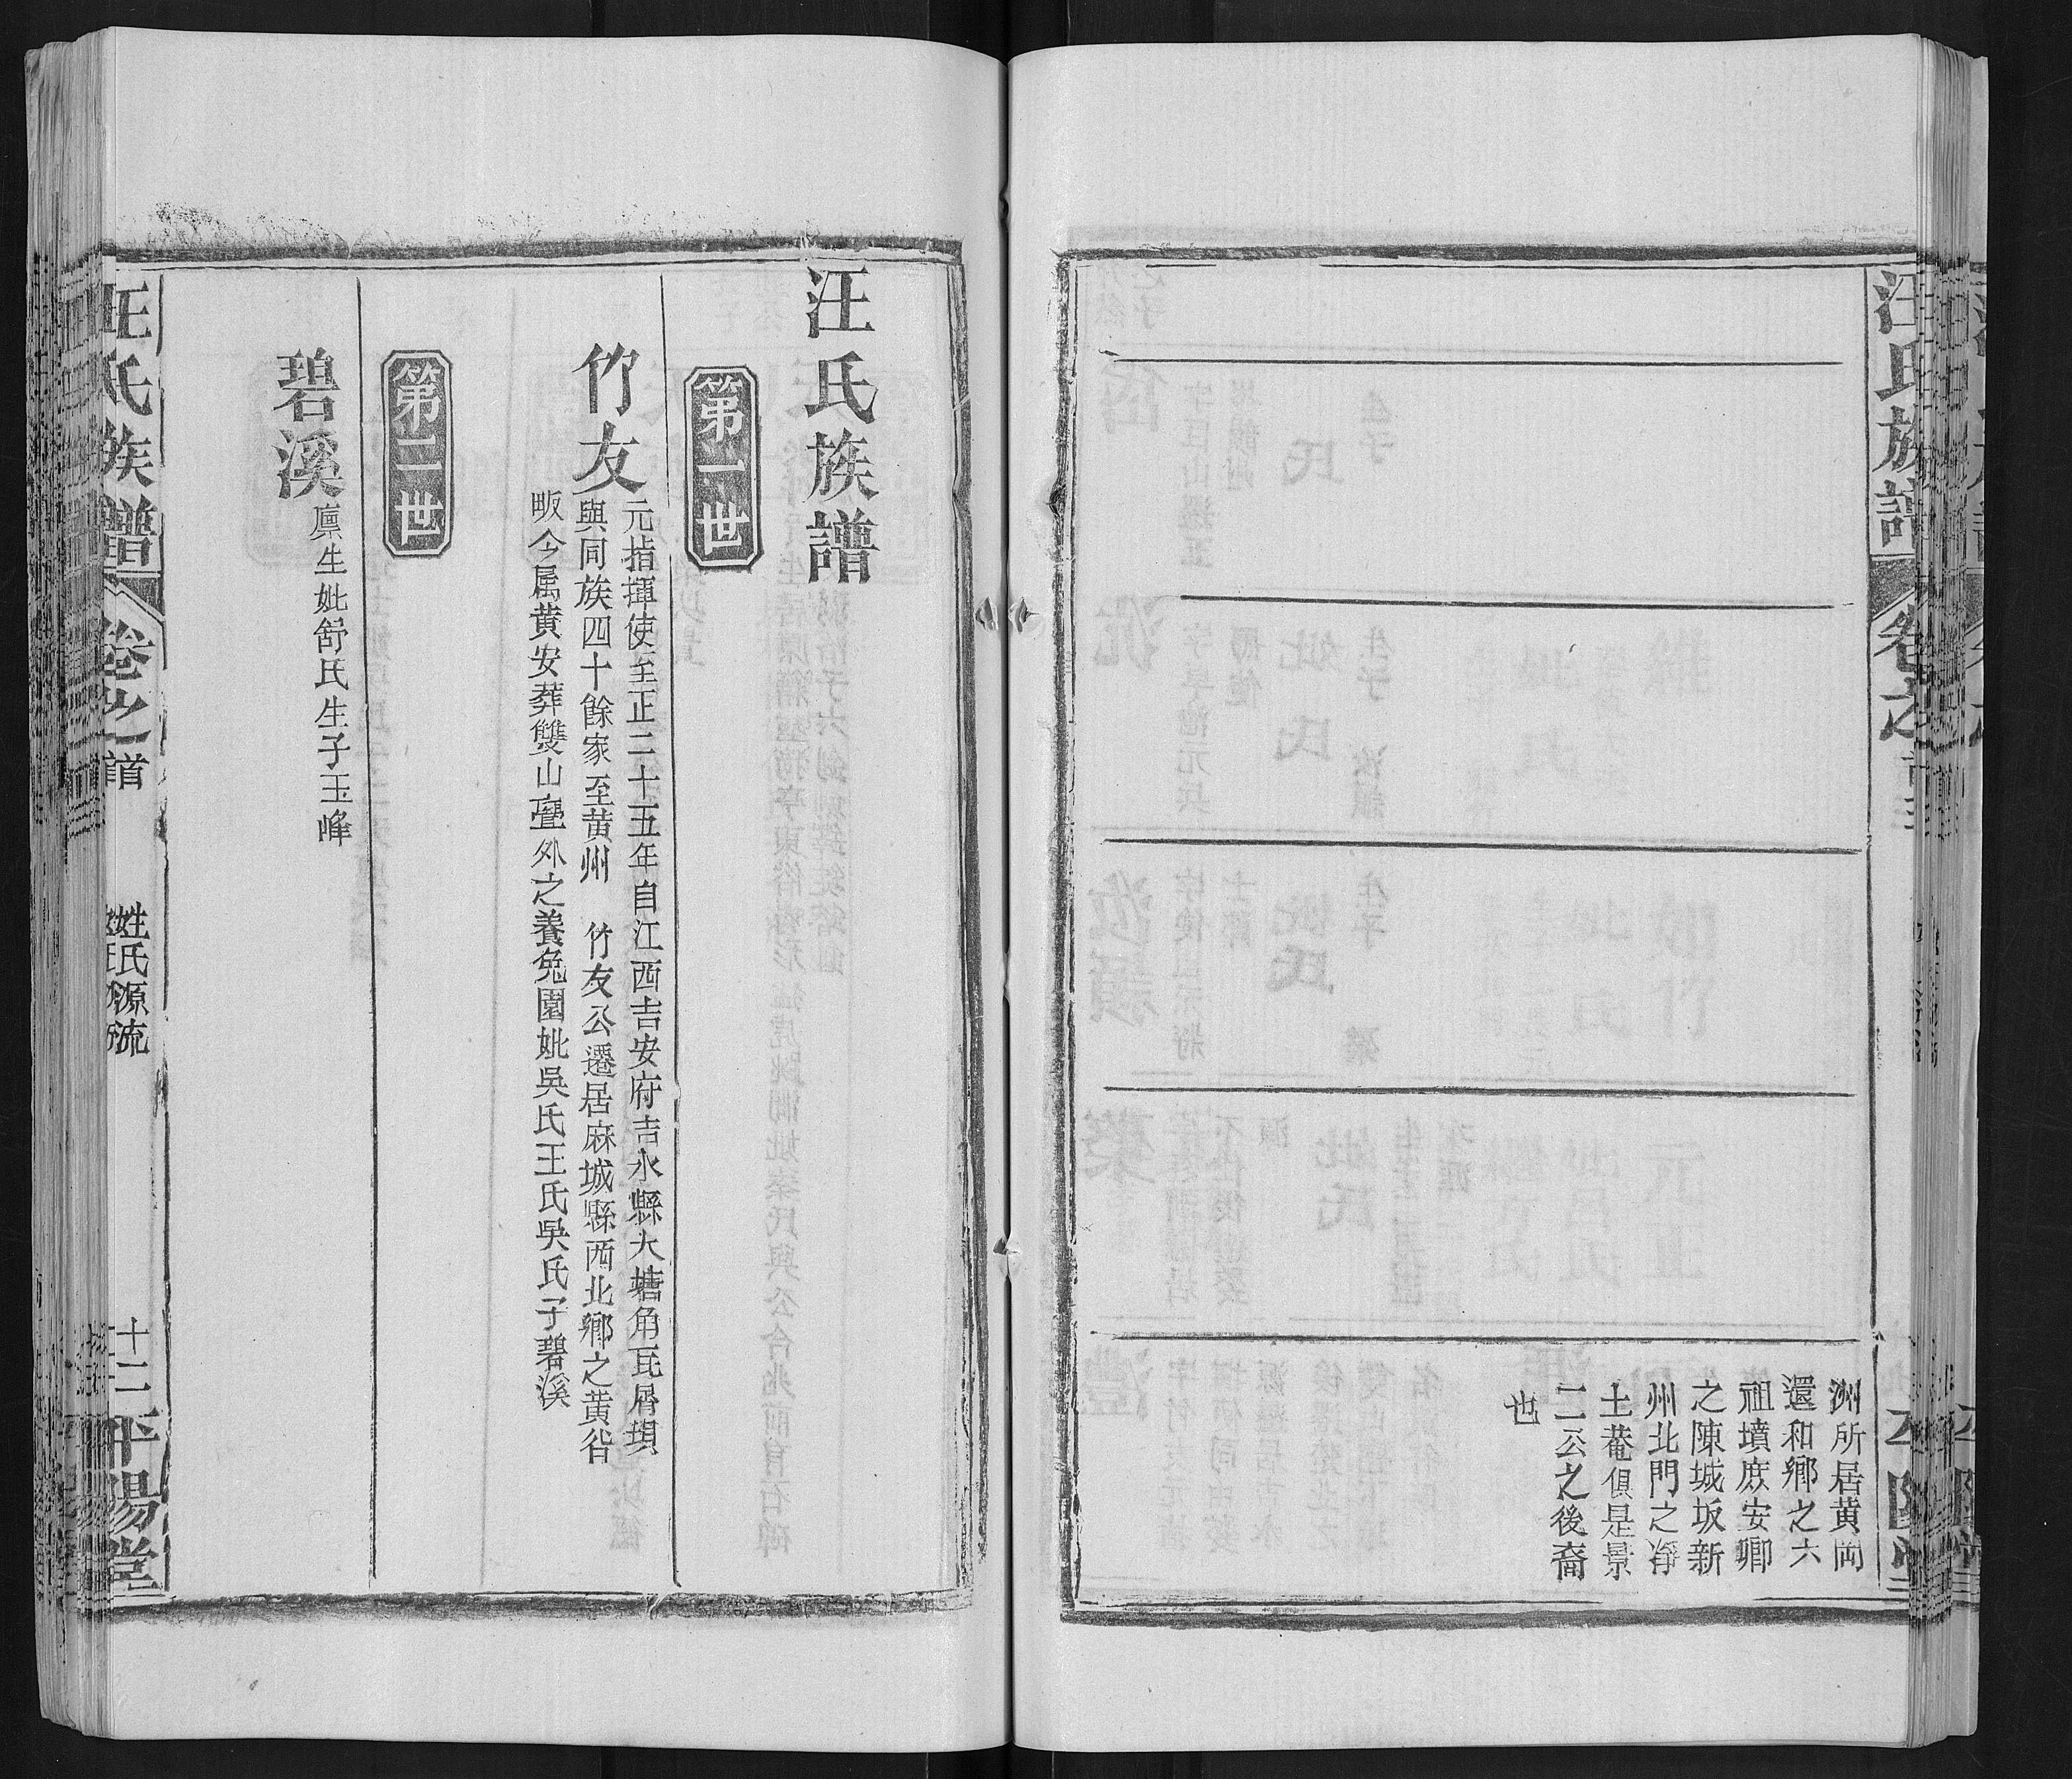 汪氏族譜
卷之首
洲所居黄岡
還和鄉之六
祖墳庶安鄉
之陳城坂新
州北門之净
土菴俱是景
二公之後裔
也
汪氏族譜
第一世
竹友
元指揮使至正二十五年自江西吉安府吉水縣大塘角瓦屑垻
與同族四十餘家至黄州 竹友公遷居麻城縣西北鄉之黄谷
畈今属黄安葬雙山亹外之養兔園妣吳氏王氏吳氏子碧溪
第二世
碧溪
廪生妣舒氏生子玉峰
汪氏族譜
卷之首
姓氏源流
十二
平陽堂